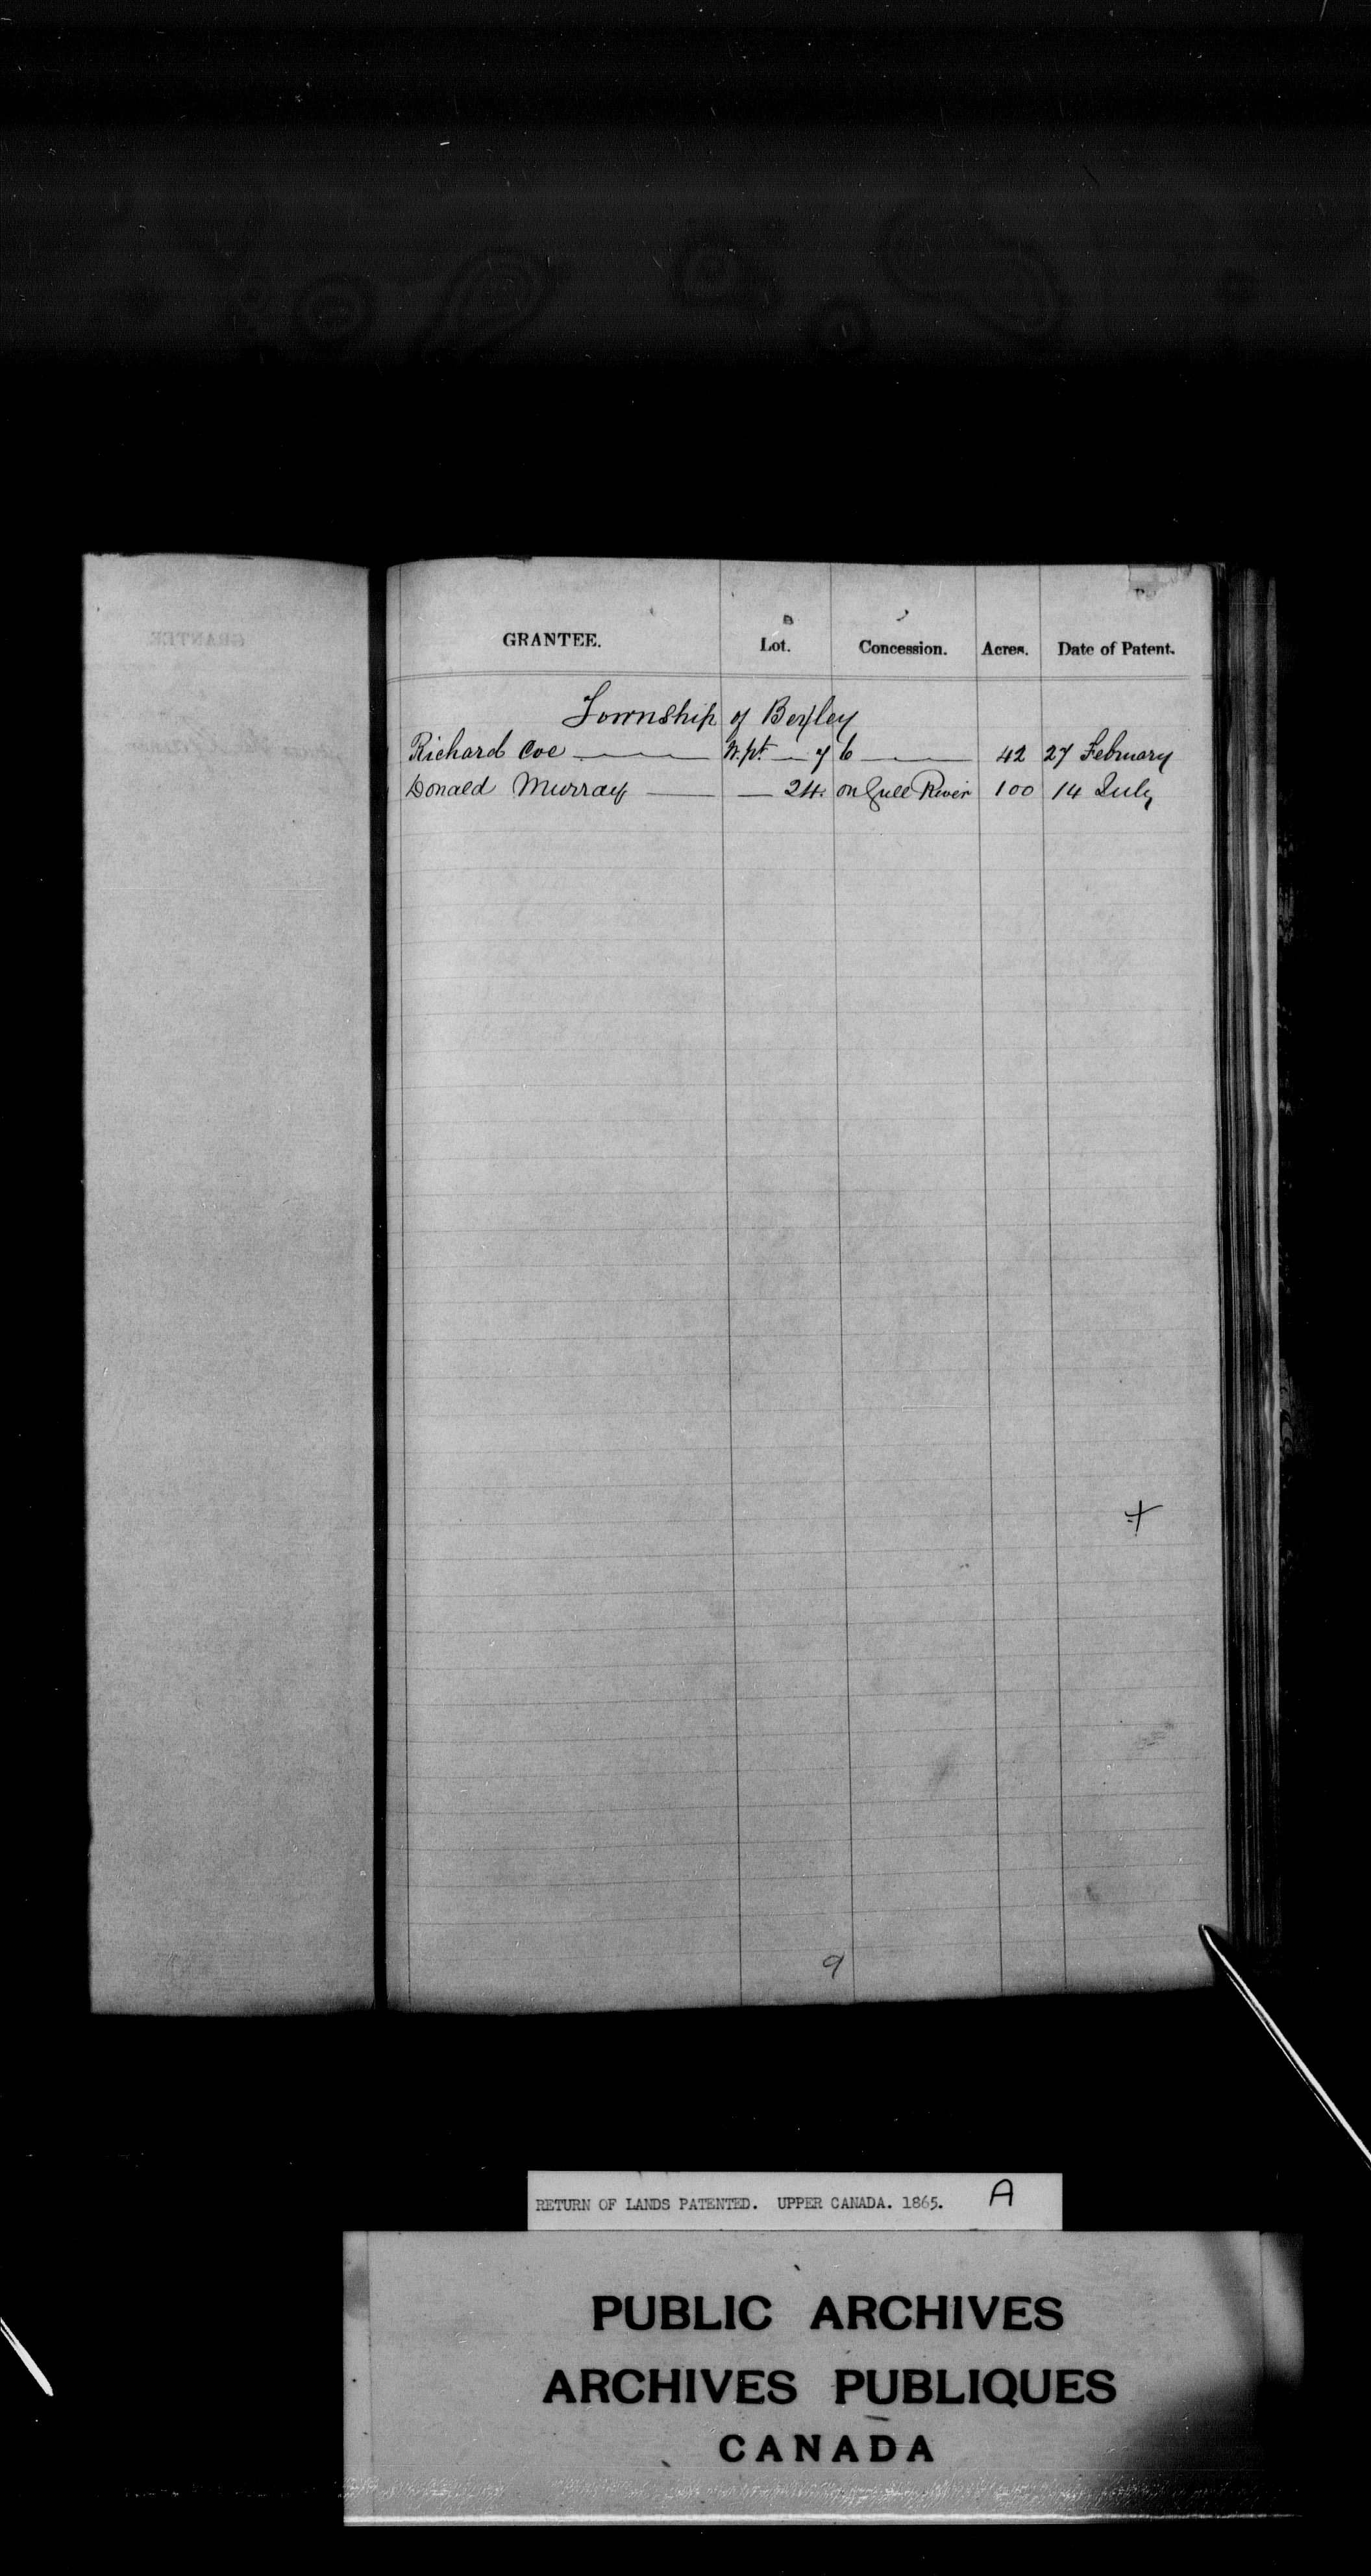 GRANTEE. Lot. Concession. Acres. Date of Patent.
Township of Bexley
Richard Coe W. pt 7 6 42 27 February
Donald Murray 24 on Gull River 100 14 July
9
RETURN OF LANDS PATENTED. UPPER CANADA. 1865. A
PUBLIC ARCHIVES
ARCHIVES PUBLIQUES
CANADA